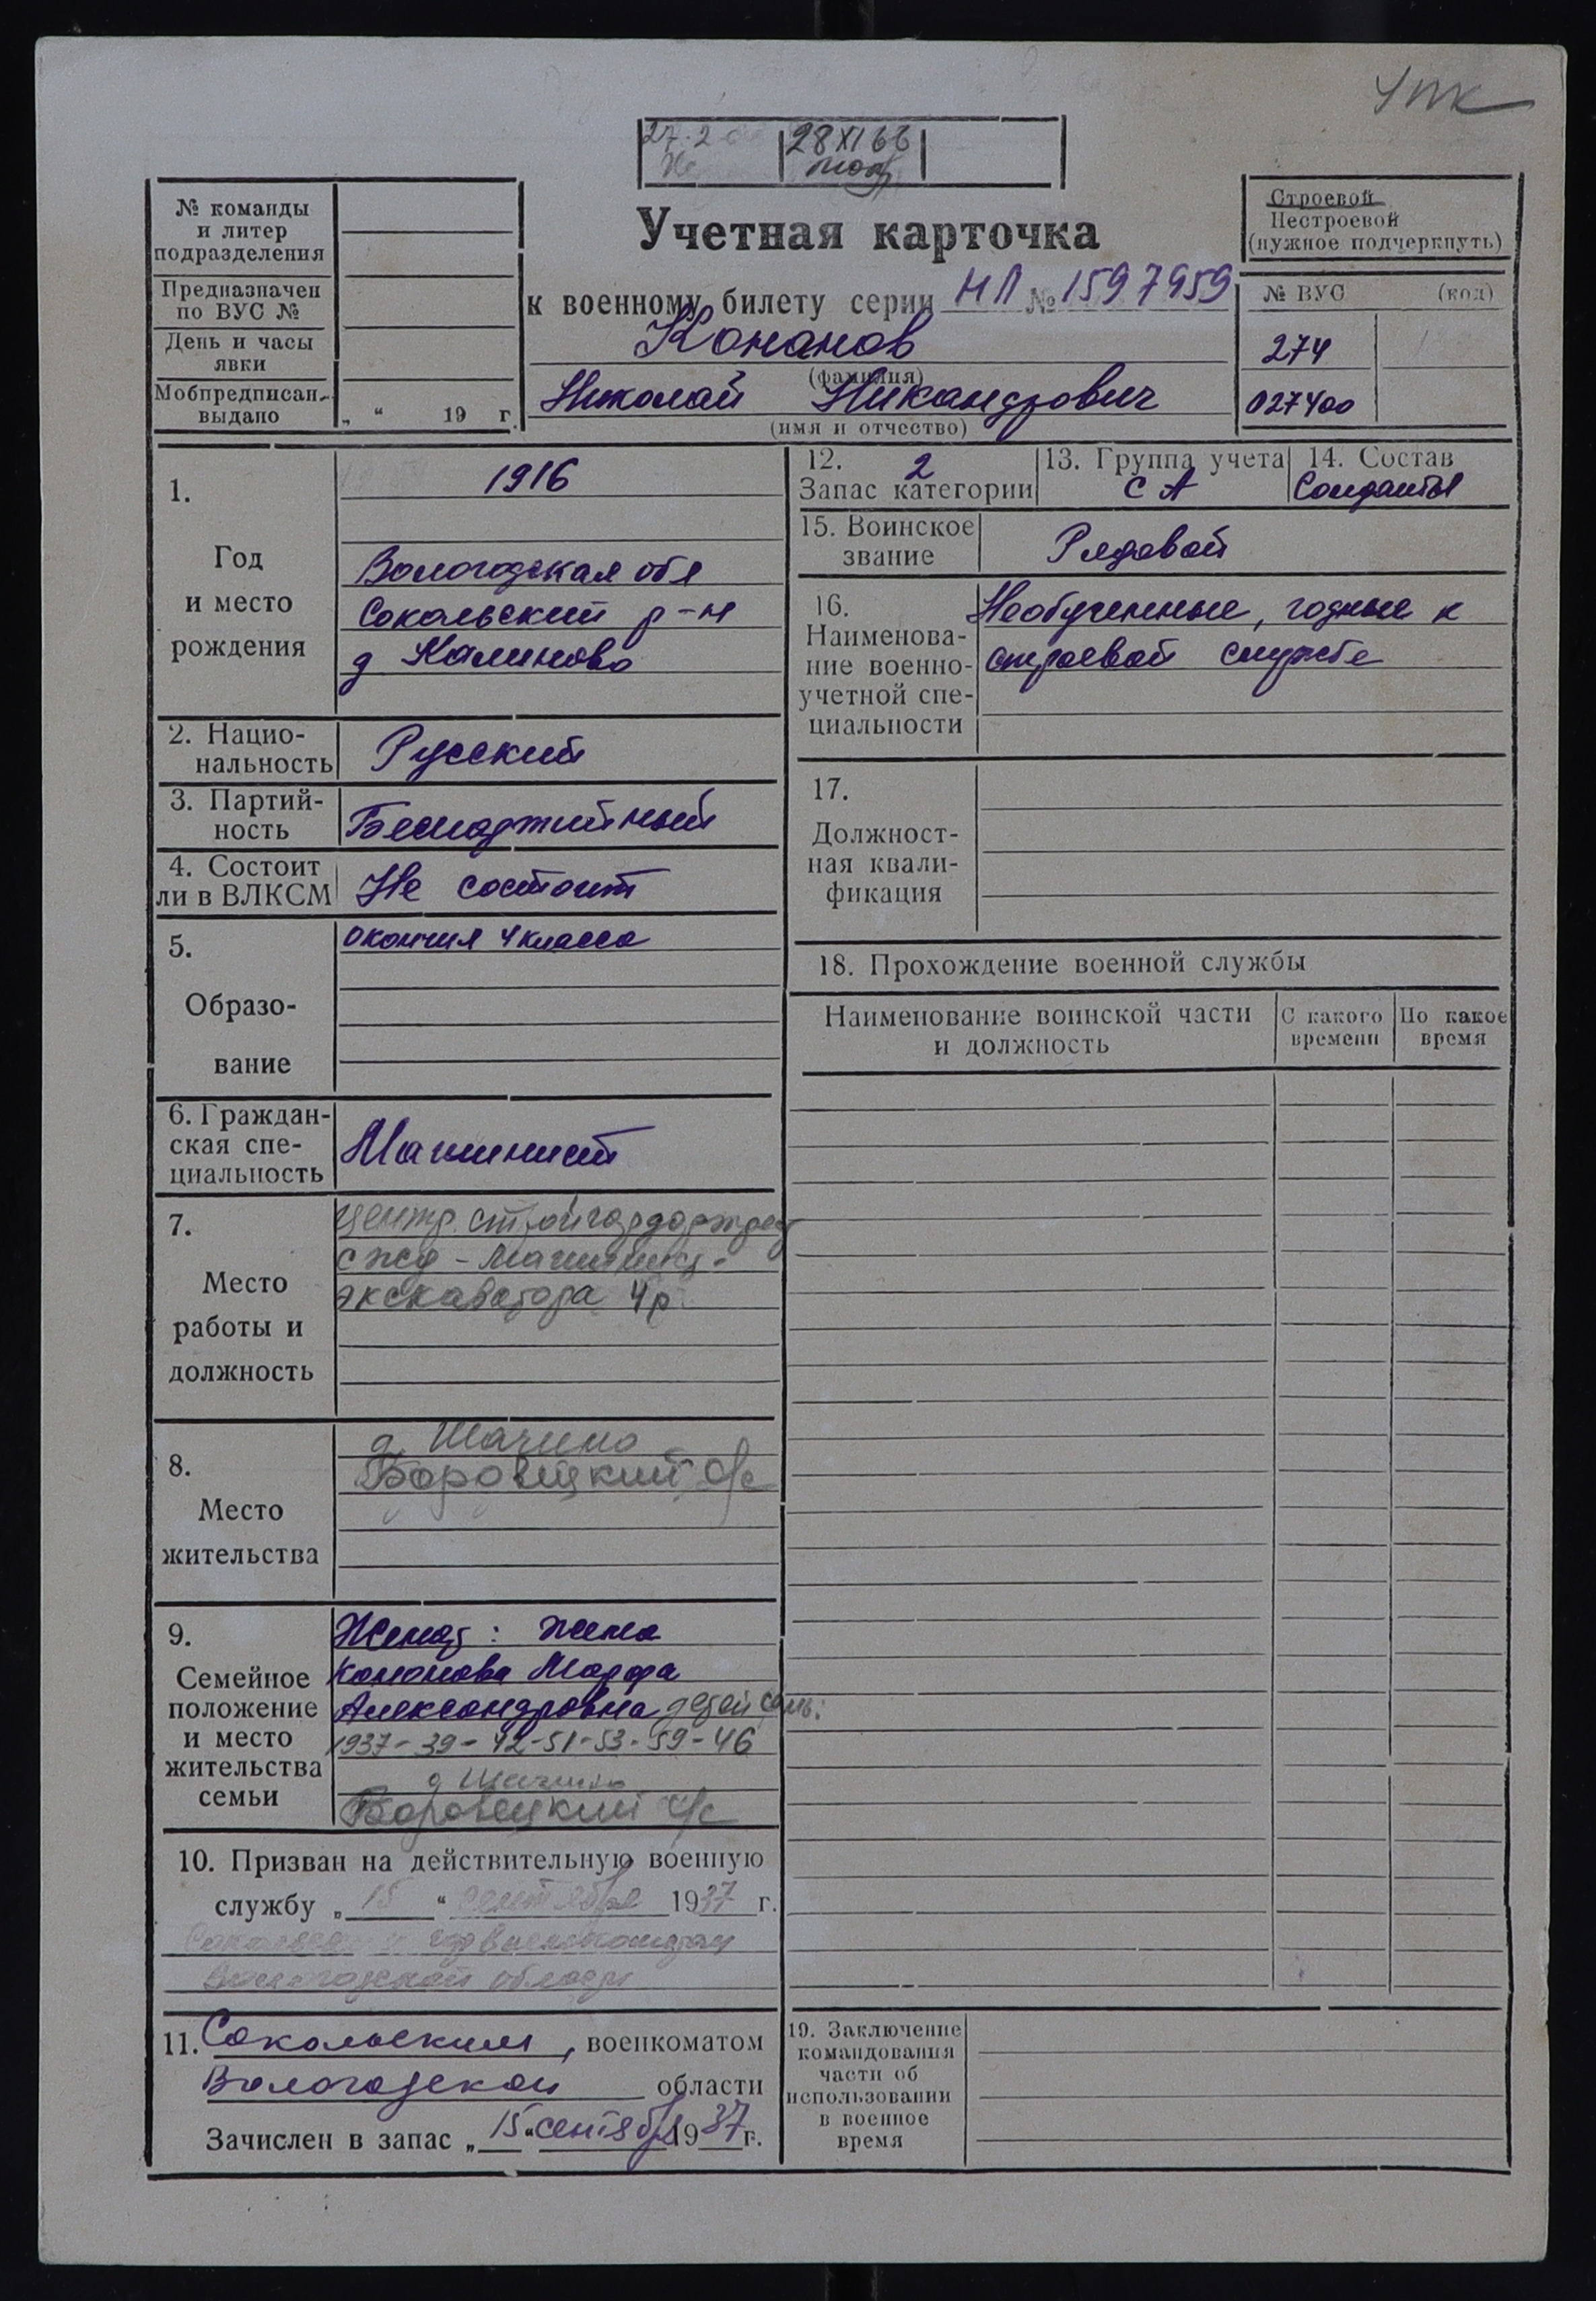 УПК
28 XI 66
Учетная карточка
к военному билету серии НЛ № 1597959
Кононов
(фамилия)
Николай Никандрович
(имя и отчество)
№ команды
и литер
подразделения
Предназначен
по ВУС №
День и часы
явки
Мобпредписан.
выдано „ “ 19 г.
Строевой
Нестроевой
(нужное подчеркнуть)
№ ВУС (код)
274
027400
1.
Год
и место
рождения
1916
Вологодская обл
Сокольский р-н
д Калиново
2. Нацио-
нальность
Русский
3. Партий-
ность
Беспартийный
4. Состоит
ли в ВЛКСМ
Не состоит
5.
Образо-
вание
Окончил 4 класса
6. Граждан-
ская спе-
циальность
Машинист
7.
Место
работы и
должность
сжд - Машинист
экскаватора 4р
8.
Место
жительства
д. Шачино
Боровецкий с/с
9.
Семейное
положение
и место
жительства
семьи
Женат: жена
Кононова Марфа
Александровна детей семь:
1937-39-42-51-53-59-46
д Шачино
Боровецкий с/с
10. Призван на действительную военную
службу „ 15 “ сентября 1937 г.
Сокольским горвоенкоматом
Вологодской области
11. Сокольским, военкоматом
Вологодской области
Зачислен в запас „ 15 “ сентября 1937 г.
12. 2
Запас категории
13. Группа учета
СА
14. Состав
Солдаты
15. Воинское
звание
Рядовой
16.
Наименова-
ние военно-
учетной спе-
циальности
Необученные, годные к
строевой службе
17.
Должност-
ная квали-
фикация
18. Прохождение военной службы
Наименование воинской части
и должность
С какого
времени
По какое
время
19. Заключение
командования
части об
использовании
в военное
время